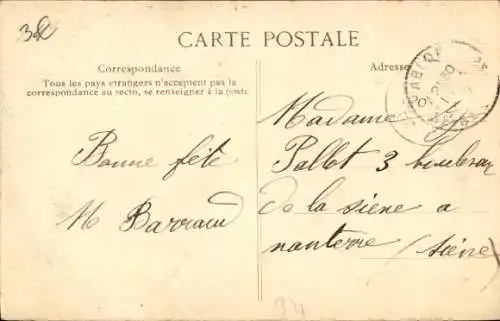 CARTE POSTALE
Correspondance
Tous les pays étrangers n'acceptent pas la
correspondance au recto, se renseigner à la poste
Bonne fête
M Barraud
Adresse
Madame
Pallot 3 bouleva
de la siene a
nanterre (seine)
94